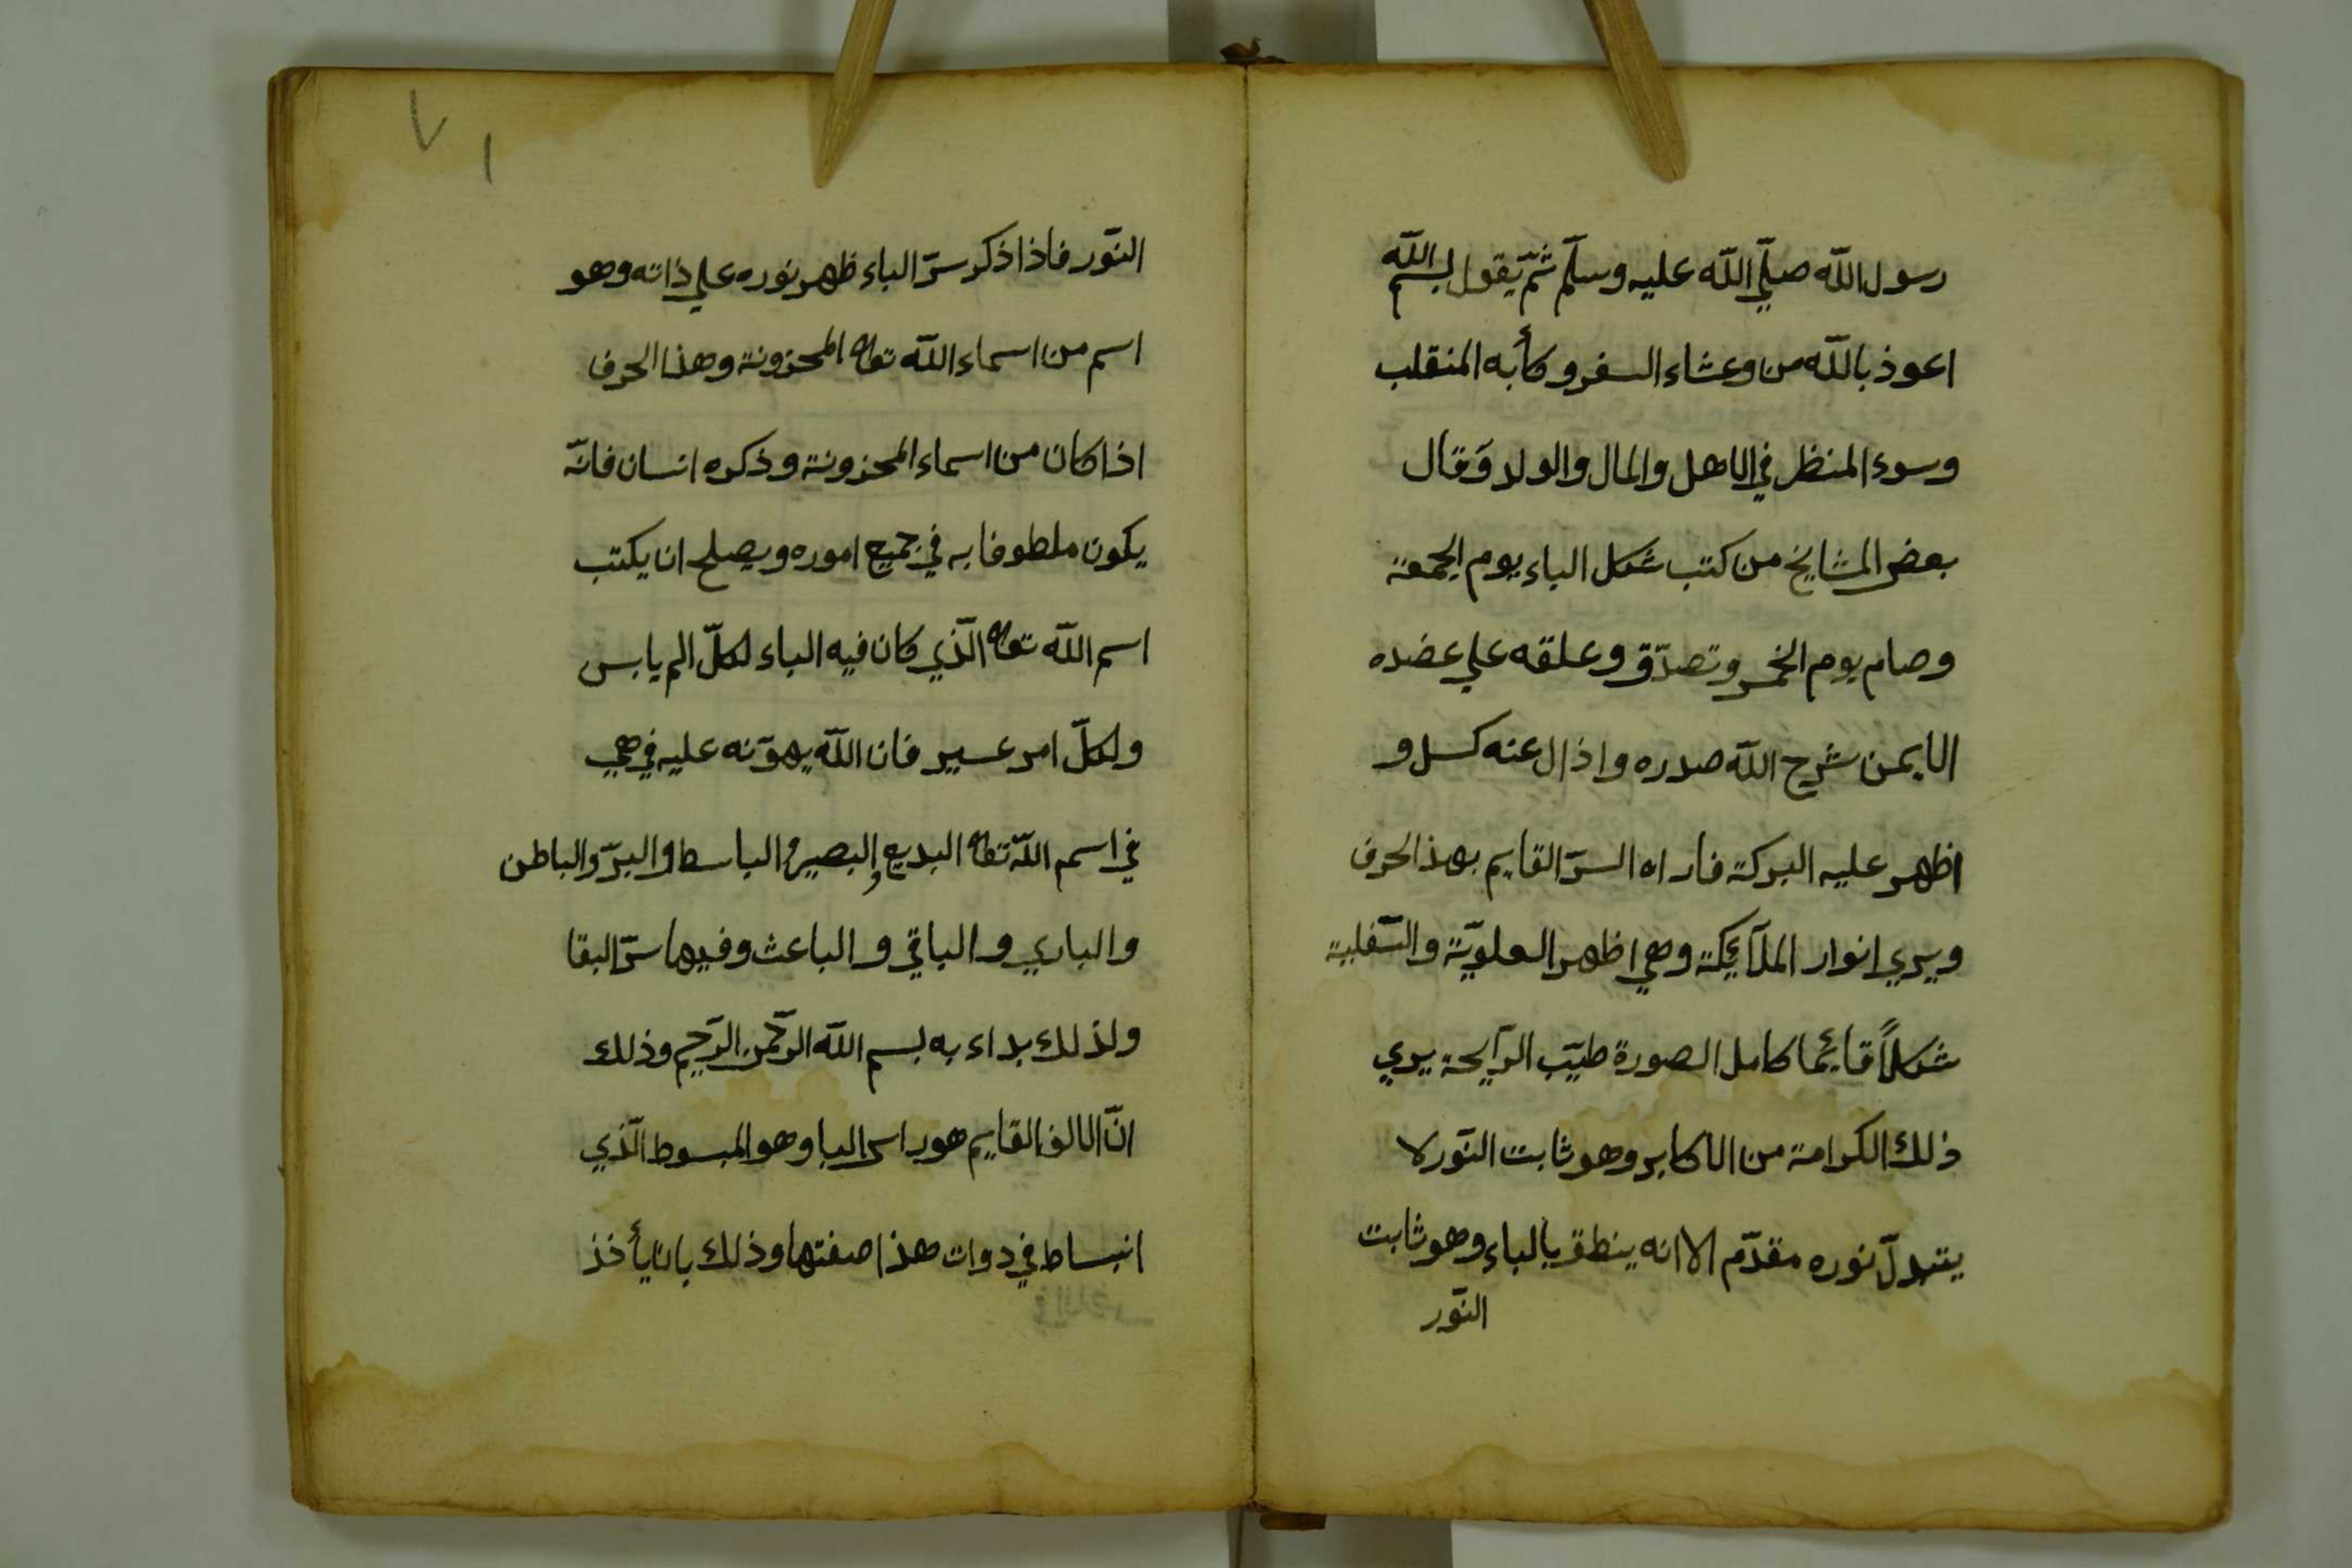 رسول اللّه صلّي اللّه عليه وسلّم ثمّ يقول بسم اللّه
اعوذ باللّه من وعشاء السفر وكأبه المنقلب
وسوء المنظر في الاهل والمال والولد وَقال
بعض المشايخ من كتب شكل الباء يوم الجمعة
وصام يوم الخمس وتصدّق وعلقه علي عضده
الايمن شرح اللّه صدره واذال عنه كسل و
اظهر عليه البركة فاراه السرّ القايم بهذ الحرف
ويري انوار الملآئكة وهي اظهر العلويّة والسّفلية
شكلاً قائما كامل الصورة طيّب الرّايحة يري
ذلك الكرامة من الاكابر وهو ثابت النّور لا
يتبدلّ نوره مقدّم الا انه ينطق بالباء وهو ثابت
النّور
٧١
النّور فاذا ذكر سرّ الباء ظهر نوره علي ذاته وهو
اسم من اسماء اللّه تعاله المخزونة وهذا الحرف
اذا كان من اسماء المخزونة وذكره انسان فانّه
يكون ملطوفا به في جميع اموره ويصلح ان يكتب
اسم اللّه تعاله الّذي كان فيه الباء لكلّ الم يابس
ولكلّ امر عسير فان اللّه يهوّنه عليه في هي
في اسم اللّه تعاله البديع والبصير والباسط والبرّ والباطن
والباري والباقي والباعث وفيها سرّ البقا
ولذلك بداء به بسم اللّه الرّحمن الرّحيم وذلك
انّ الالف القايم هو راس البا وهو المبسوط الّذي
انبساط في دوات هذا صفتها وذلك بان يأخذ